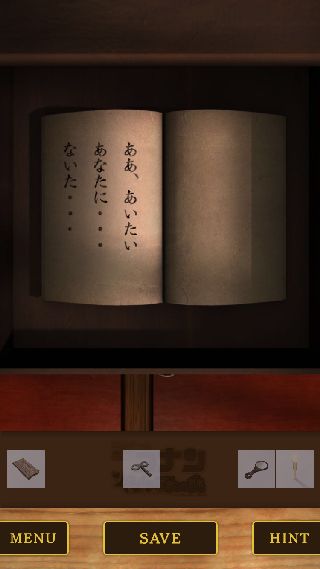 ああ、あいたい
あなたに・・・
ないた・・・
MENU
SAVE
HINT